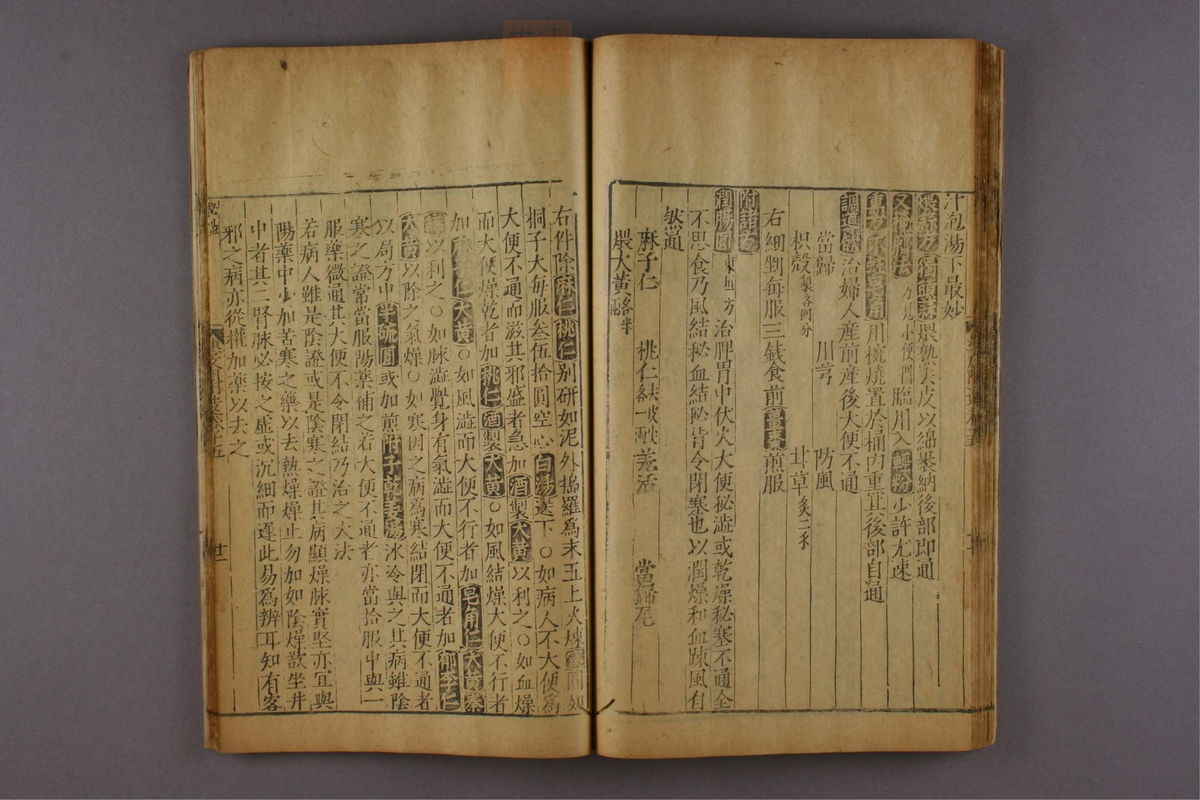 汁泡湯下最妙
煨蒜方獨頭蒜煨熟去皮以綿裹納後部即通
又 小便 臨用入輕粉少許尤速
皂角用椀燒置於桶內熏其後部自通
調導飲治婦人產前產後大便不通
當歸 川芎 防風
枳殼製各四分 甘草炙二分
右細剉每服三錢食前薑棗煎服
附諸方
潤腸圓東垣方治脾胃中伏火大便秘澁或乾燥秘塞不通全
不思食乃風結秘血結秘皆令閉塞也以潤燥和血踈風自
然通
麻子仁 桃仁去皮尖各一兩 羗活 當歸尾
煨大黃各半兩
右件除麻仁桃仁別研如泥外搗羅為末五上火煉蜜圓如
桐子大每服叁伍拾圓空心白湯送下○如病人不大便為
大便不通而滋其邪盛者急加酒製大黃以利之○如血燥
而大便燥乾者加桃仁酒製大黃○如風結燥大便不行者
加麻子仁大黃○如風澁而大便不行者加皂角仁大黃秦
艽以利之○如脉澁覺身有氣澁而大便不通者加郁李仁
大黃以除之氣燥○如寒因之病為寒結閉而大便不通者
以局方中半硫圓或加煎附子乾姜湯冰冷與之其病雖陰
寒之證當常服陽藥補之若大便不通者亦當拾服中與一
服藥微通其大便不令閉結乃治之大法
若病人雖是陰證或是陰寒之證其病顯燥脉實堅亦宜與
陽藥中少加苦寒之藥以去熱燥燥止勿加如陰燥欲坐井
中者其二腎脉必按之虛或沉細而遲此易為辨耳知有客
邪之病亦從權加藥以去之
廿一